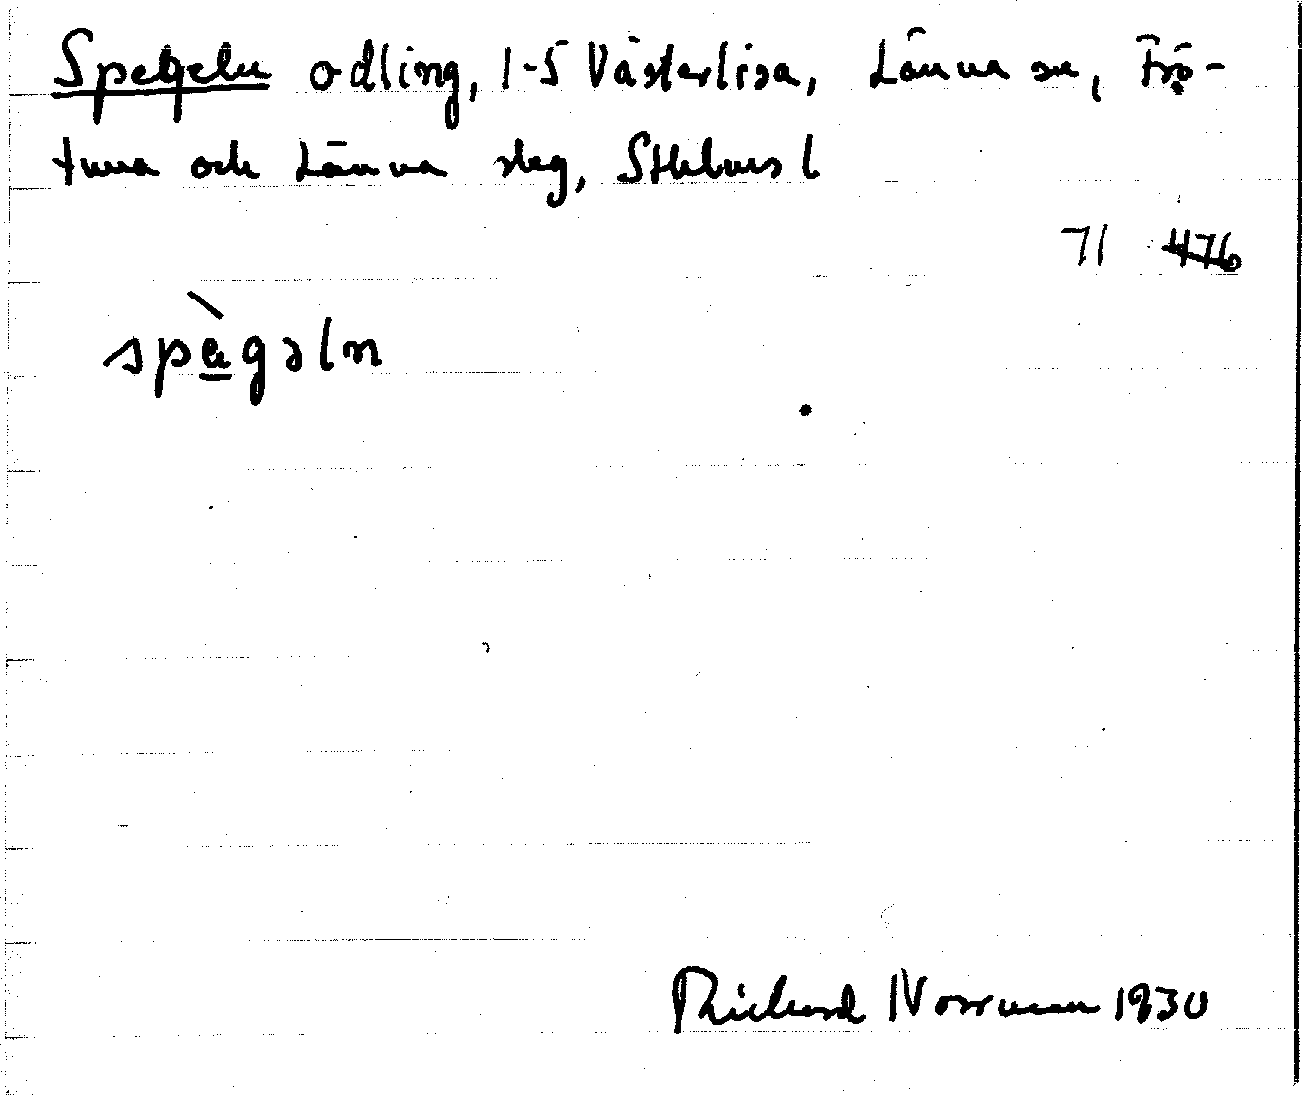 Spegeln odling, 1-5 Västerlisa, Länna sn, Frö-
tuna och Länna slg, Sthlms l
71 476
spègəln
Richard Norrman 1930